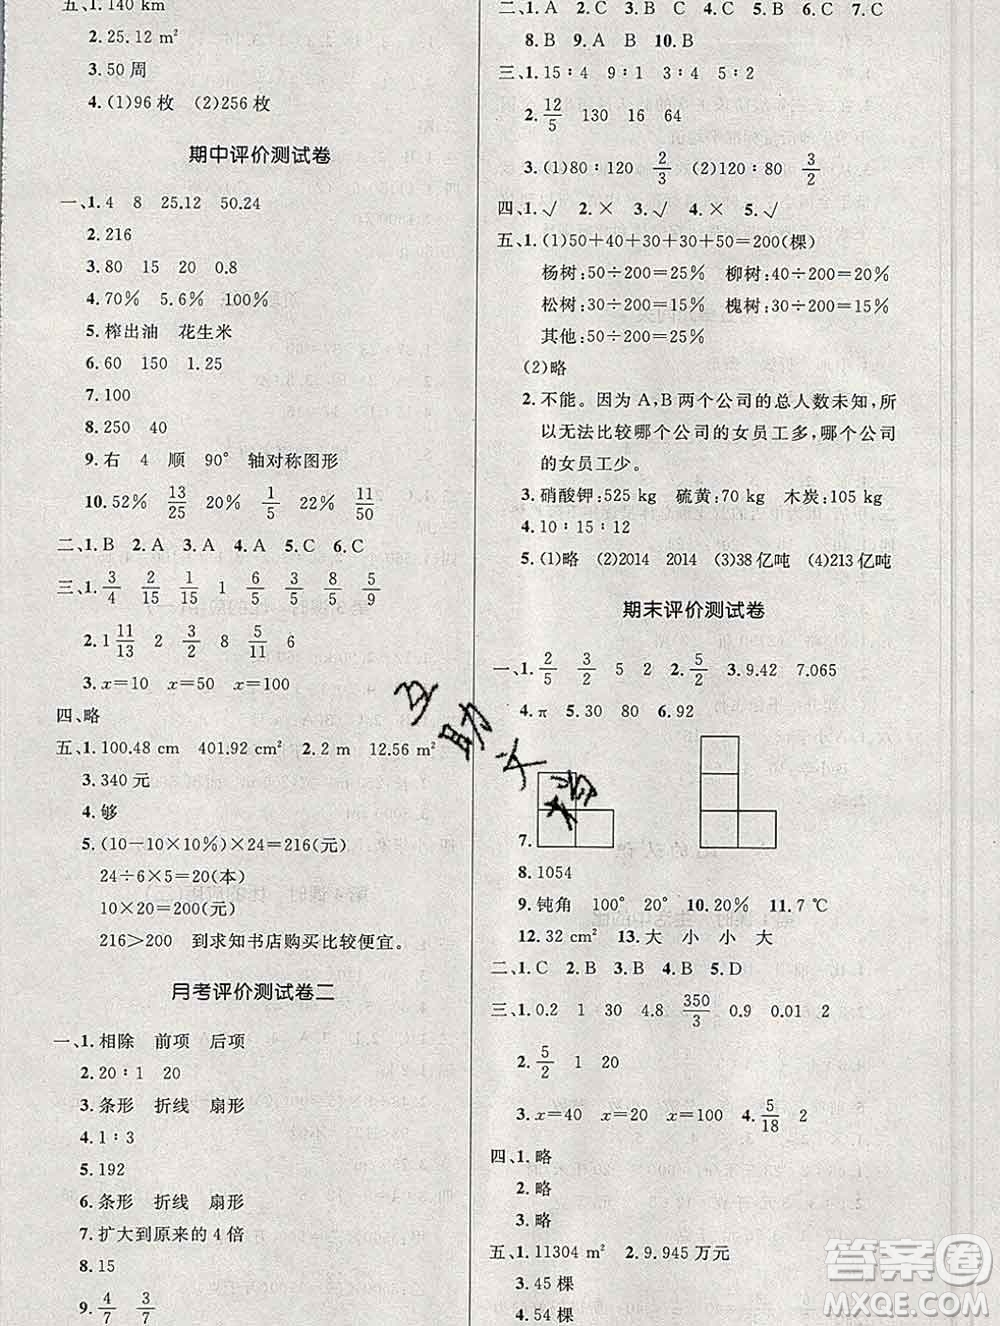 五、1.140 km
2.25.12 m²
3.50 周
4.(1)96 枚 (2)256 枚
期中评价测试卷
一、1.4 8 25.12 50.24
2.216
3.80 15 20 0.8
4.70% 5.6% 100%
5.榨出油 花生米
6.60 150 1.25
7.100
8.250 40
9.右 4 顺 90° 轴对称图形
10.52% 13/25 20% 1/5 22% 11/50
二、1.B 2.A 3.A 4.A 5.C 6.C
三、1.3/4 2/15 4/15 1 6/5 1/8 2/5
2.1 11/13 2 3/2 8 5/11 6
3.x=10 x=50 x=100
四、略
五、1.100.48 cm 401.92 cm² 2.2 m 12.56 m²
3.340 元
4.够
5.(10-10×10%)×24=216(元)
24÷6×5=20(本)
10×20=200(元)
216>200 到求知书店购买比较便宜。
月考评价测试卷二
一、1.相除 前项 后项
2.20∶1 20
3.条形 折线 扇形
4.1∶3
5.192
6.条形 折线 扇形
7.扩大到原来的 4 倍
8.15
9.4/7 3/7
二、1.A 2.C 3.B C 4.C 5.B 6.C 7.C
8.B 9.A B 10.B
三、1.15∶4 9∶1 3∶4 5∶2
2.12/5 130 16 64
3.(1)80∶120 2/3 (2)120∶80 3/2
四、1.√ 2.× 3.√ 4.× 5.√
五、1.(1)50+40+30+30+50=200(棵)
杨树:50÷200=25% 柳树:40÷200=20%
松树:30÷200=15% 槐树:30÷200=15%
其他:50÷200=25%
(2)略
2.不能。因为 A,B 两个公司的总人数未知,所
以无法比较哪个公司的女员工多,哪个公司
的女员工少。
3.硝酸钾:525 kg 硫黄:70 kg 木炭:105 kg
4.10∶15∶12
5.(1)略 (2)2014 2014 (3)38 亿吨 (4)213 亿吨
期末评价测试卷
一、1.2/5 3/2 5 2 2.5/2 3.9.42 7.065
4.π 5.30 80 6.92
7.
8.1054
9.钝角 100° 20° 10.20% 11.7 ℃
12.32 cm² 13.大 小 小 大
二、1.C 2.B 3.B 4.B 5.D
三、1.0.2 1 30 4.8 350/3 0.9 0.01 2
2.5/2 1 20
3.x=40 x=20 x=100 4.5/18 2
四、1.略
2.略
3.略
五、1.11304 m² 2.9.945 万元
3.45 棵
4.54 棵
互助文档
答案圈
MXQE.COM